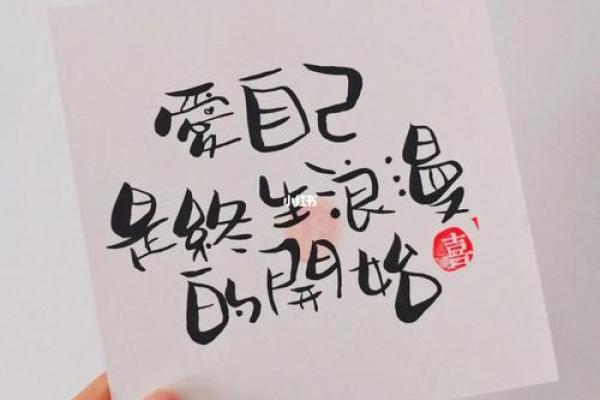 愛自己
是終生浪漫
的開始
喜
小红书